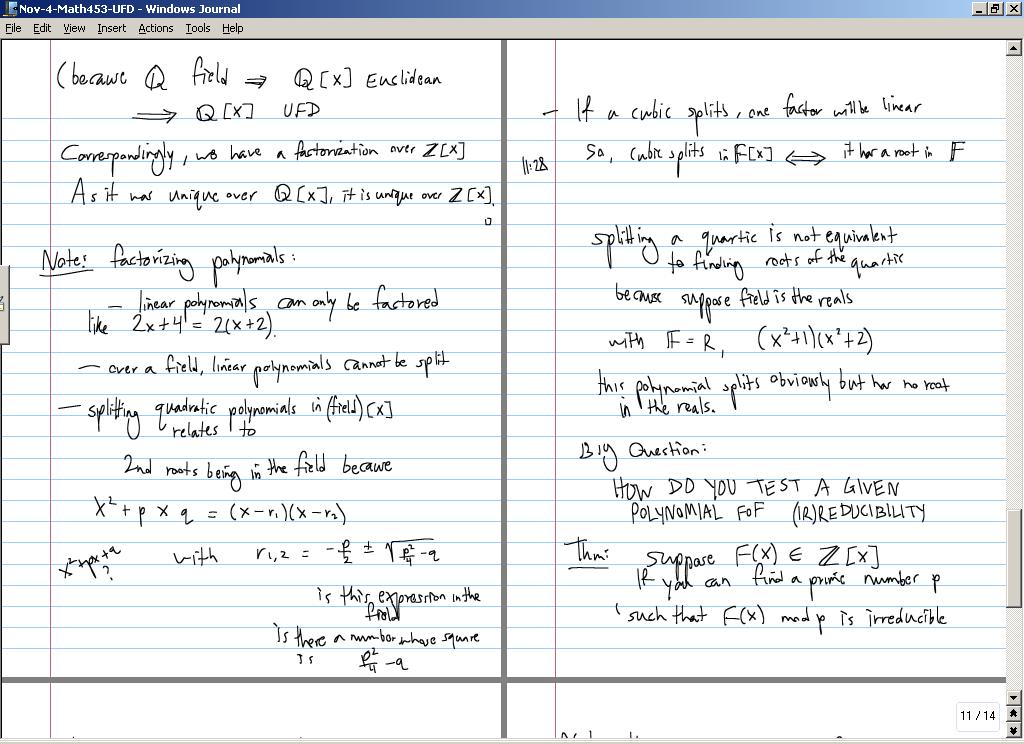 Nov-4-Math453-UFD - Windows Journal
File Edit View Insert Actions Tools Help
(because ℚ field ⇒ ℚ[x] Euclidean
⟹ ℚ[x] UFD
Correspondingly, we have a factorization over ℤ[x]
As it was unique over ℚ[x], it is unique over ℤ[x].
□
Note: factorizing polynomials:
– linear polynomials can only be factored
like 2x+4 = 2(x+2).
– over a field, linear polynomials cannot be split
– splitting quadratic polynomials in (field)[x]
relates to
2nd roots being in the field because
x² + p x q = (x-r₁)(x-r₂)
x²+px+q
?
with r₁,₂ = -p/2 ± √(p²/4 - q)
is this expression in the
field
is there a number whose square
is p²/4 - q
– If a cubic splits, one factor will be linear
11:28
So, cubic splits in 𝔽[x] ⟺ it has a root in 𝔽
splitting a quartic is not equivalent
to finding roots of the quartic
because suppose field is the reals
with 𝔽 = R, (x²+1)(x²+2)
this polynomial splits obviously but has no root
in the reals.
Big Question:
HOW DO YOU TEST A GIVEN
POLYNOMIAL FOF (IR)REDUCIBILITY
Thm: suppose F(x) ∈ ℤ[x]
If you can find a prime number p
such that F(x) mod p is irreducible
11 / 14